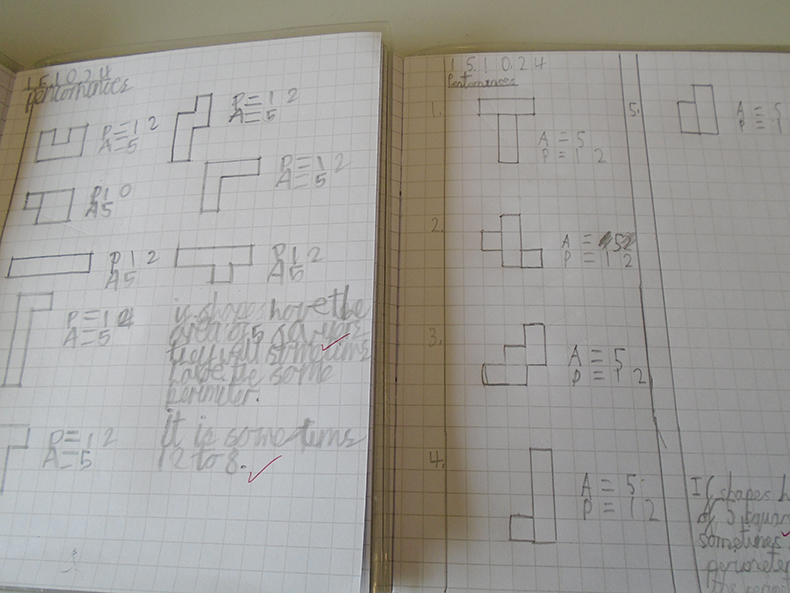 15.10.24
pentominties
P=12
A=5
P=12
A=5
P=12
A=5
P10
A5
P12
A5
P12
A5
P=14
A=5
P=12
A=5
have the
area of 5
they will sometims
have the same
perimiter.
it is sometims
12 to 8.
15.10.24
Pentominoes
1.
A = 5
P = 12
2.
A = 52
P = 12
3.
A = 5
P = 12
4.
A = 5
P = 12
5.
A = 5
P = 1
If shapes h
of 5 squar
sometimes
perimeter
the